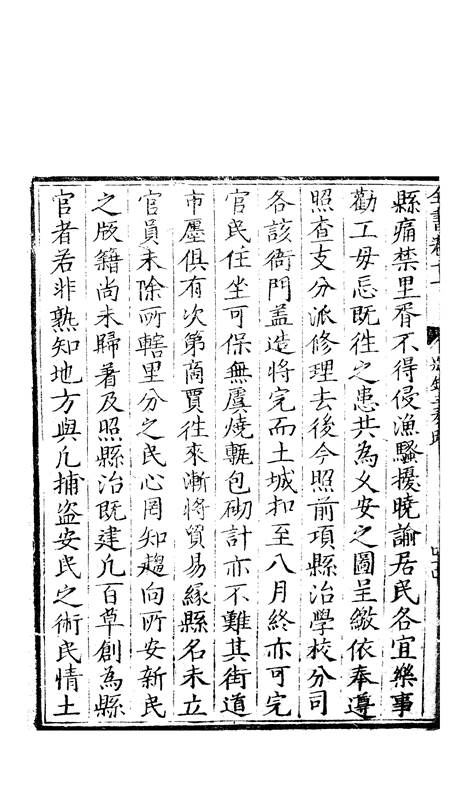 縣痛禁里胥不得侵漁騷擾曉諭居民各宜樂事
勸工毋忌既徃之患共為乂安之圖呈繳依奉遵
照查支分派修理去後今照前項縣治學校分司
各該衙門盖造將完而土城扣至八月終亦可完
官民住坐可保無虞燒甎包砌計亦不難其街道
市廛俱有次第商賈徃來漸將貿易緣縣名未立
官員未除所轄里分之民心罔知趨向所安新民
之版籍尚未歸着及照縣治既建凢百草創為縣
官者若非熟知地方與凢捕盗安民之術民情土